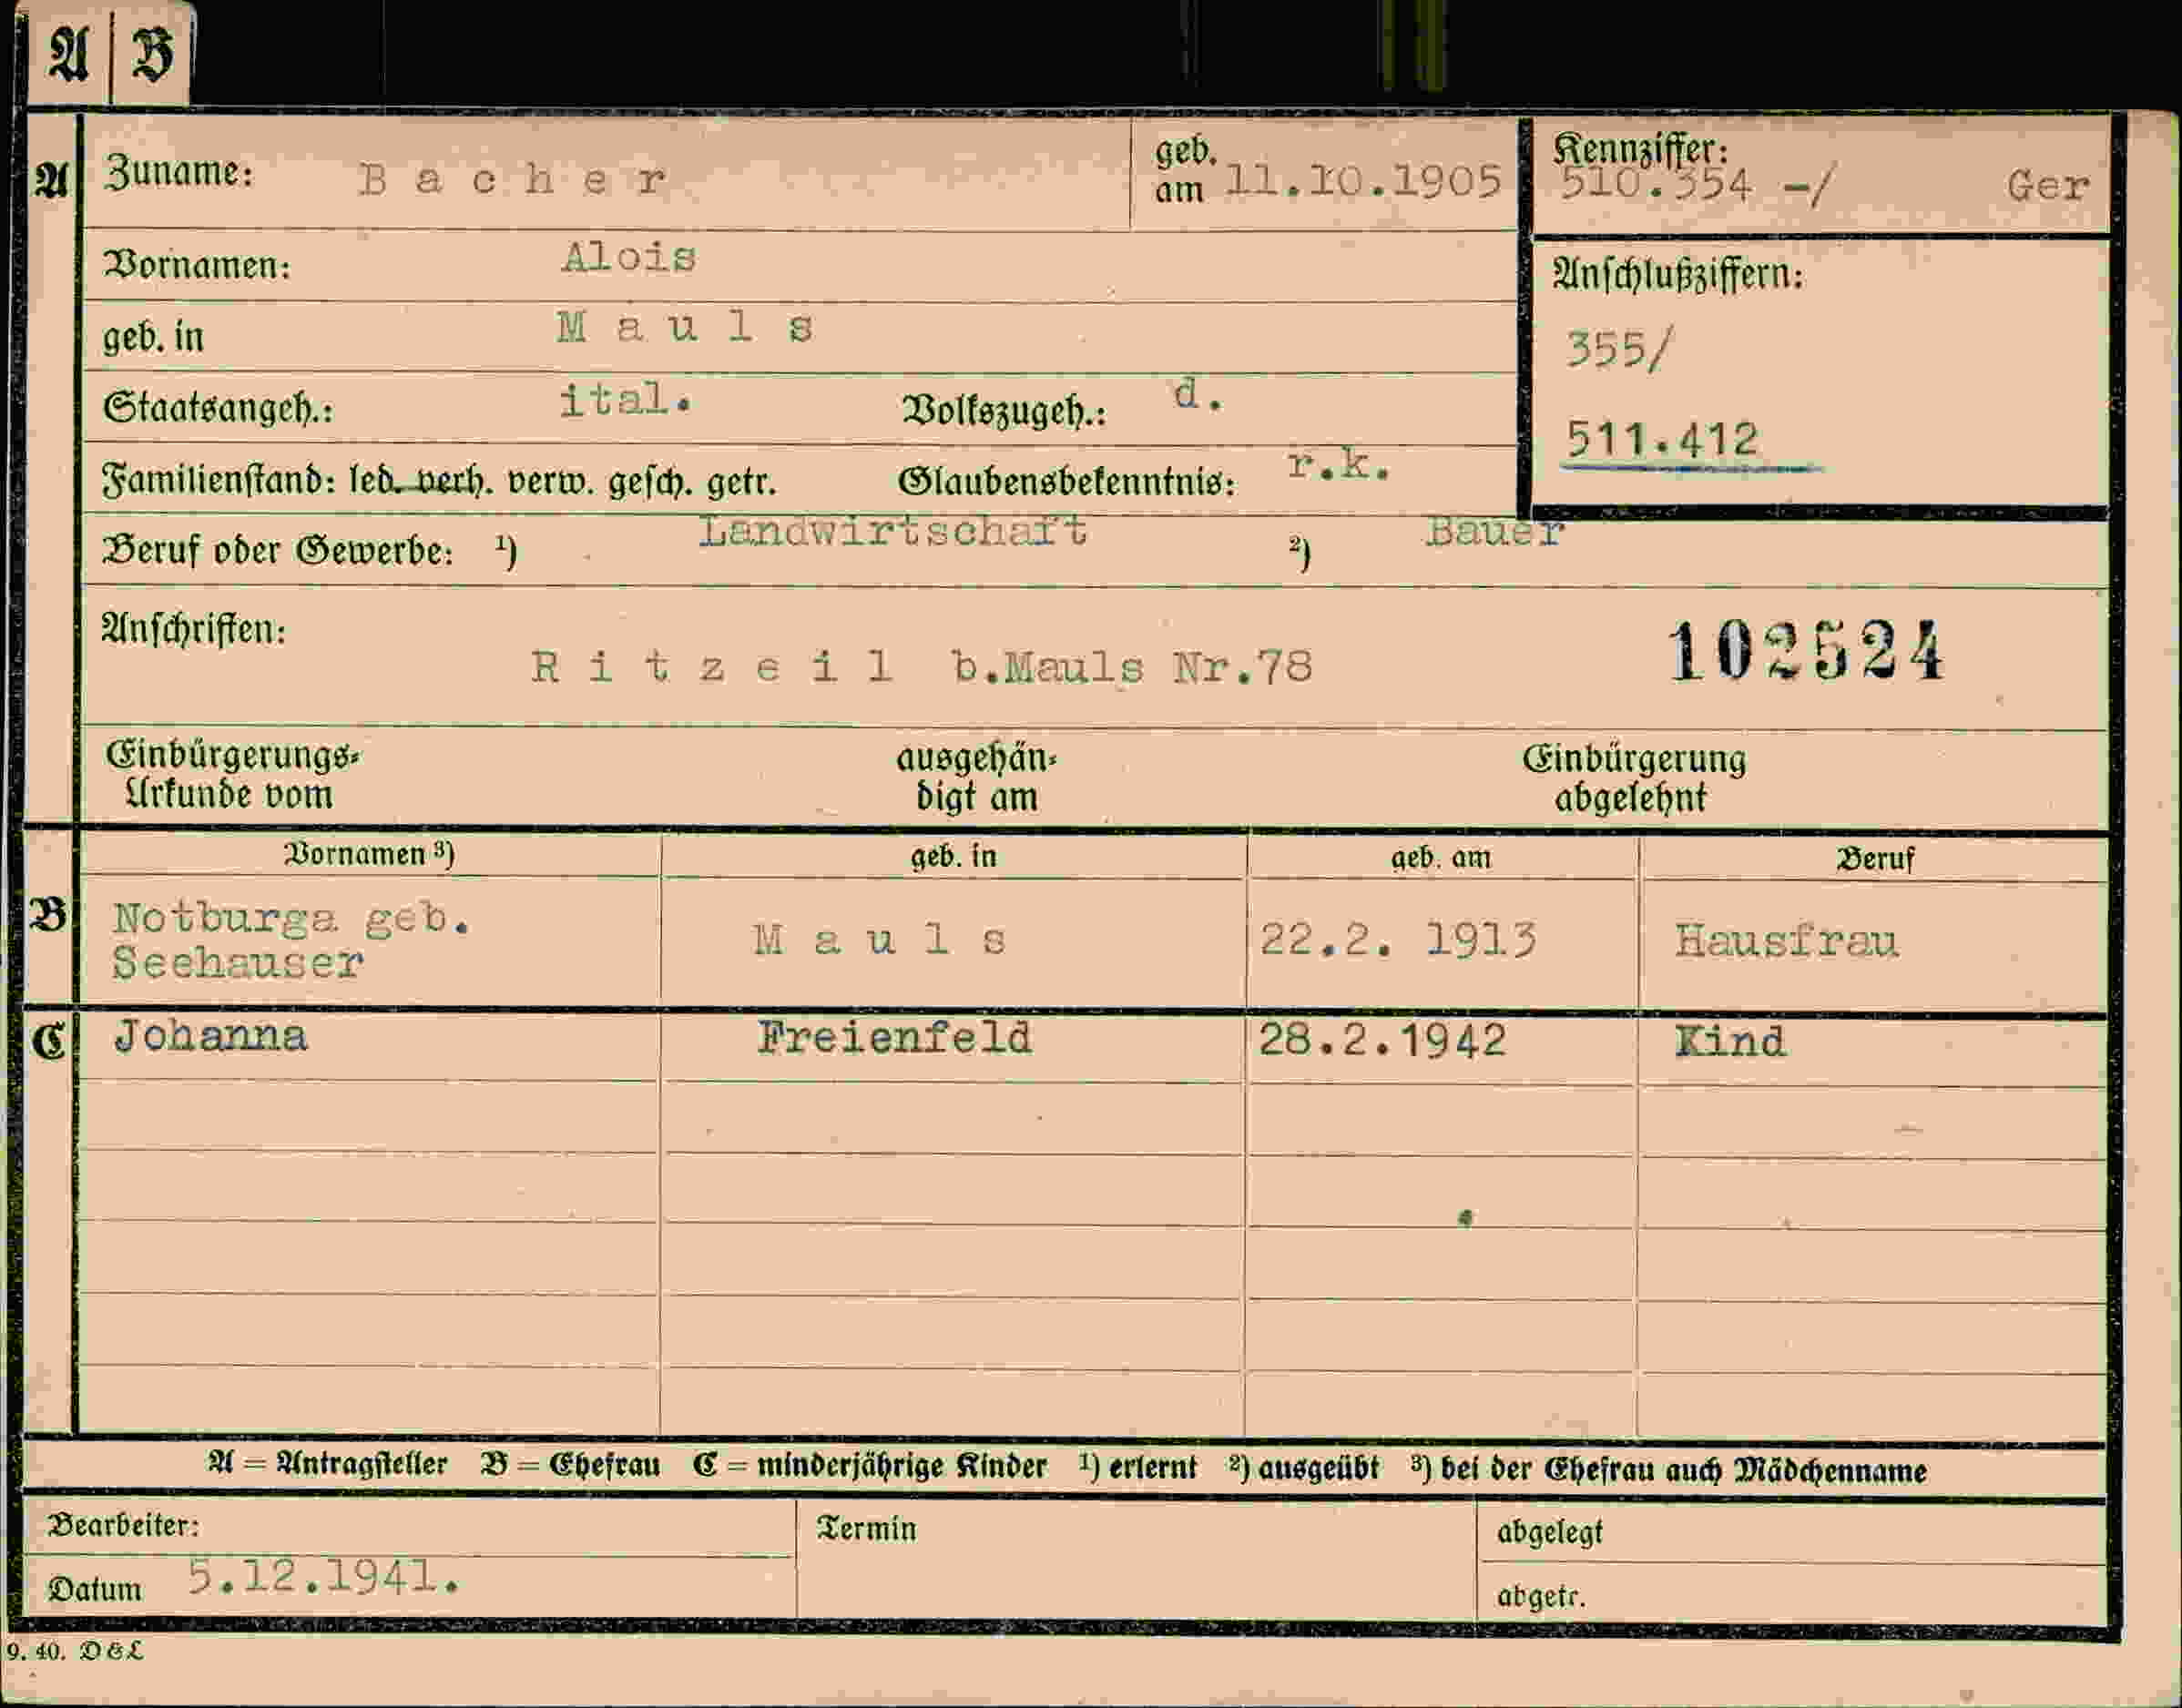 A B
A Zuname: Bacher geb. am 11.10.1905 Kennziffer: 510.354 -/ Ger
Vornamen: Alois
geb. in Mauls
Anschlußziffern:
355/
Staatsangeh.: ital. Volkszugeh.: d.
511.412
Familienstand: led. verh. verw. gesch. getr. Glaubensbekenntnis: r.k.
Beruf oder Gewerbe: ¹) Landwirtschaft ²) Bauer
Anschriften:
Ritzeil b.Mauls Nr.78 102524
Einbürgerungs- ausgehän- Einbürgerung
Urkunde vom digt am abgelehnt
Vornamen ³) geb. in geb. am Beruf
B Notburga geb.
Seehauser Mauls 22.2. 1913 Hausfrau
C Johanna Freienfeld 28.2.1942 Kind
A = Antragsteller B = Ehefrau C = minderjährige Kinder ¹) erlernt ²) ausgeübt ³) bei der Ehefrau auch Mädchenname
Bearbeiter: Termin abgelegt
Datum 5.12.1941. abgetr.
9. 40. D&L